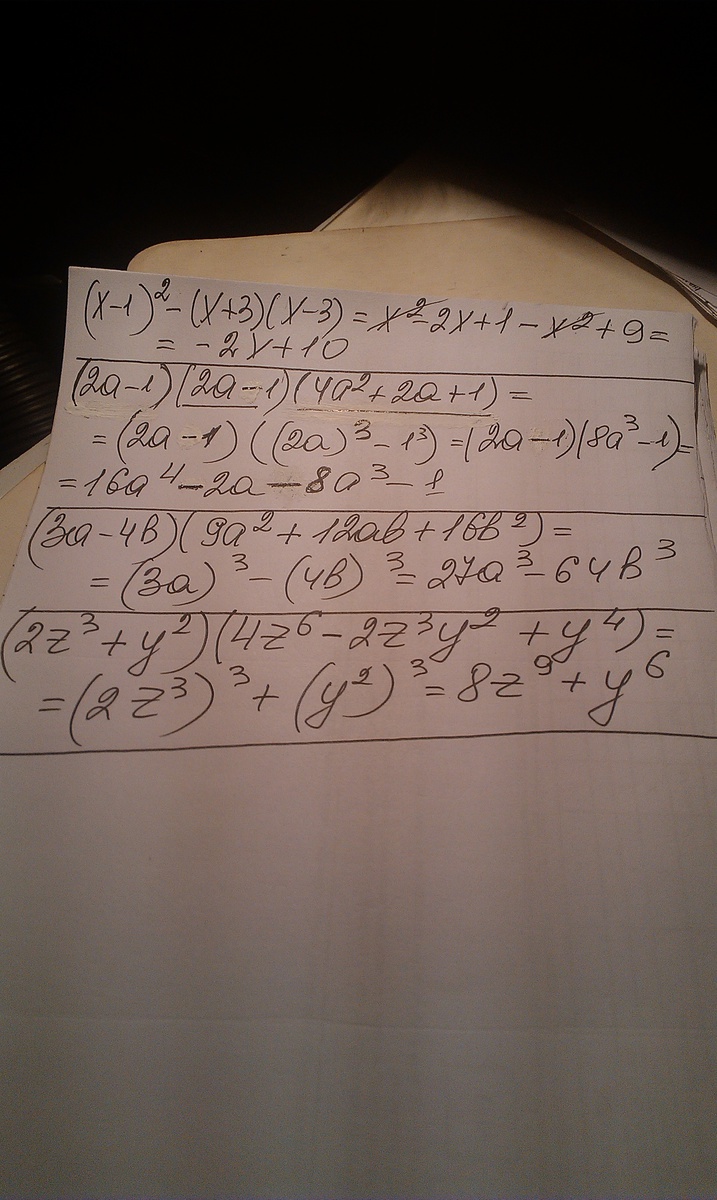 (x-1)² - (x+3)(x-3) = x² - 2x + 1 - x² + 9 =
= -2x + 10
(2a-1)(2a-1)(4a² + 2a + 1) =
= (2a - 1)((2a)³ - 1³) = (2a - 1)(8a³ - 1) =
= 16a⁴ - 2a - 8a³ - 1
(3a - 4b)(9a² + 12ab + 16b²) =
= (3a)³ - (4b)³ = 27a³ - 64b³
(2z³ + y²)(4z⁶ - 2z³y² + y⁴) =
= (2z³)³ + (y²)³ = 8z⁹ + y⁶